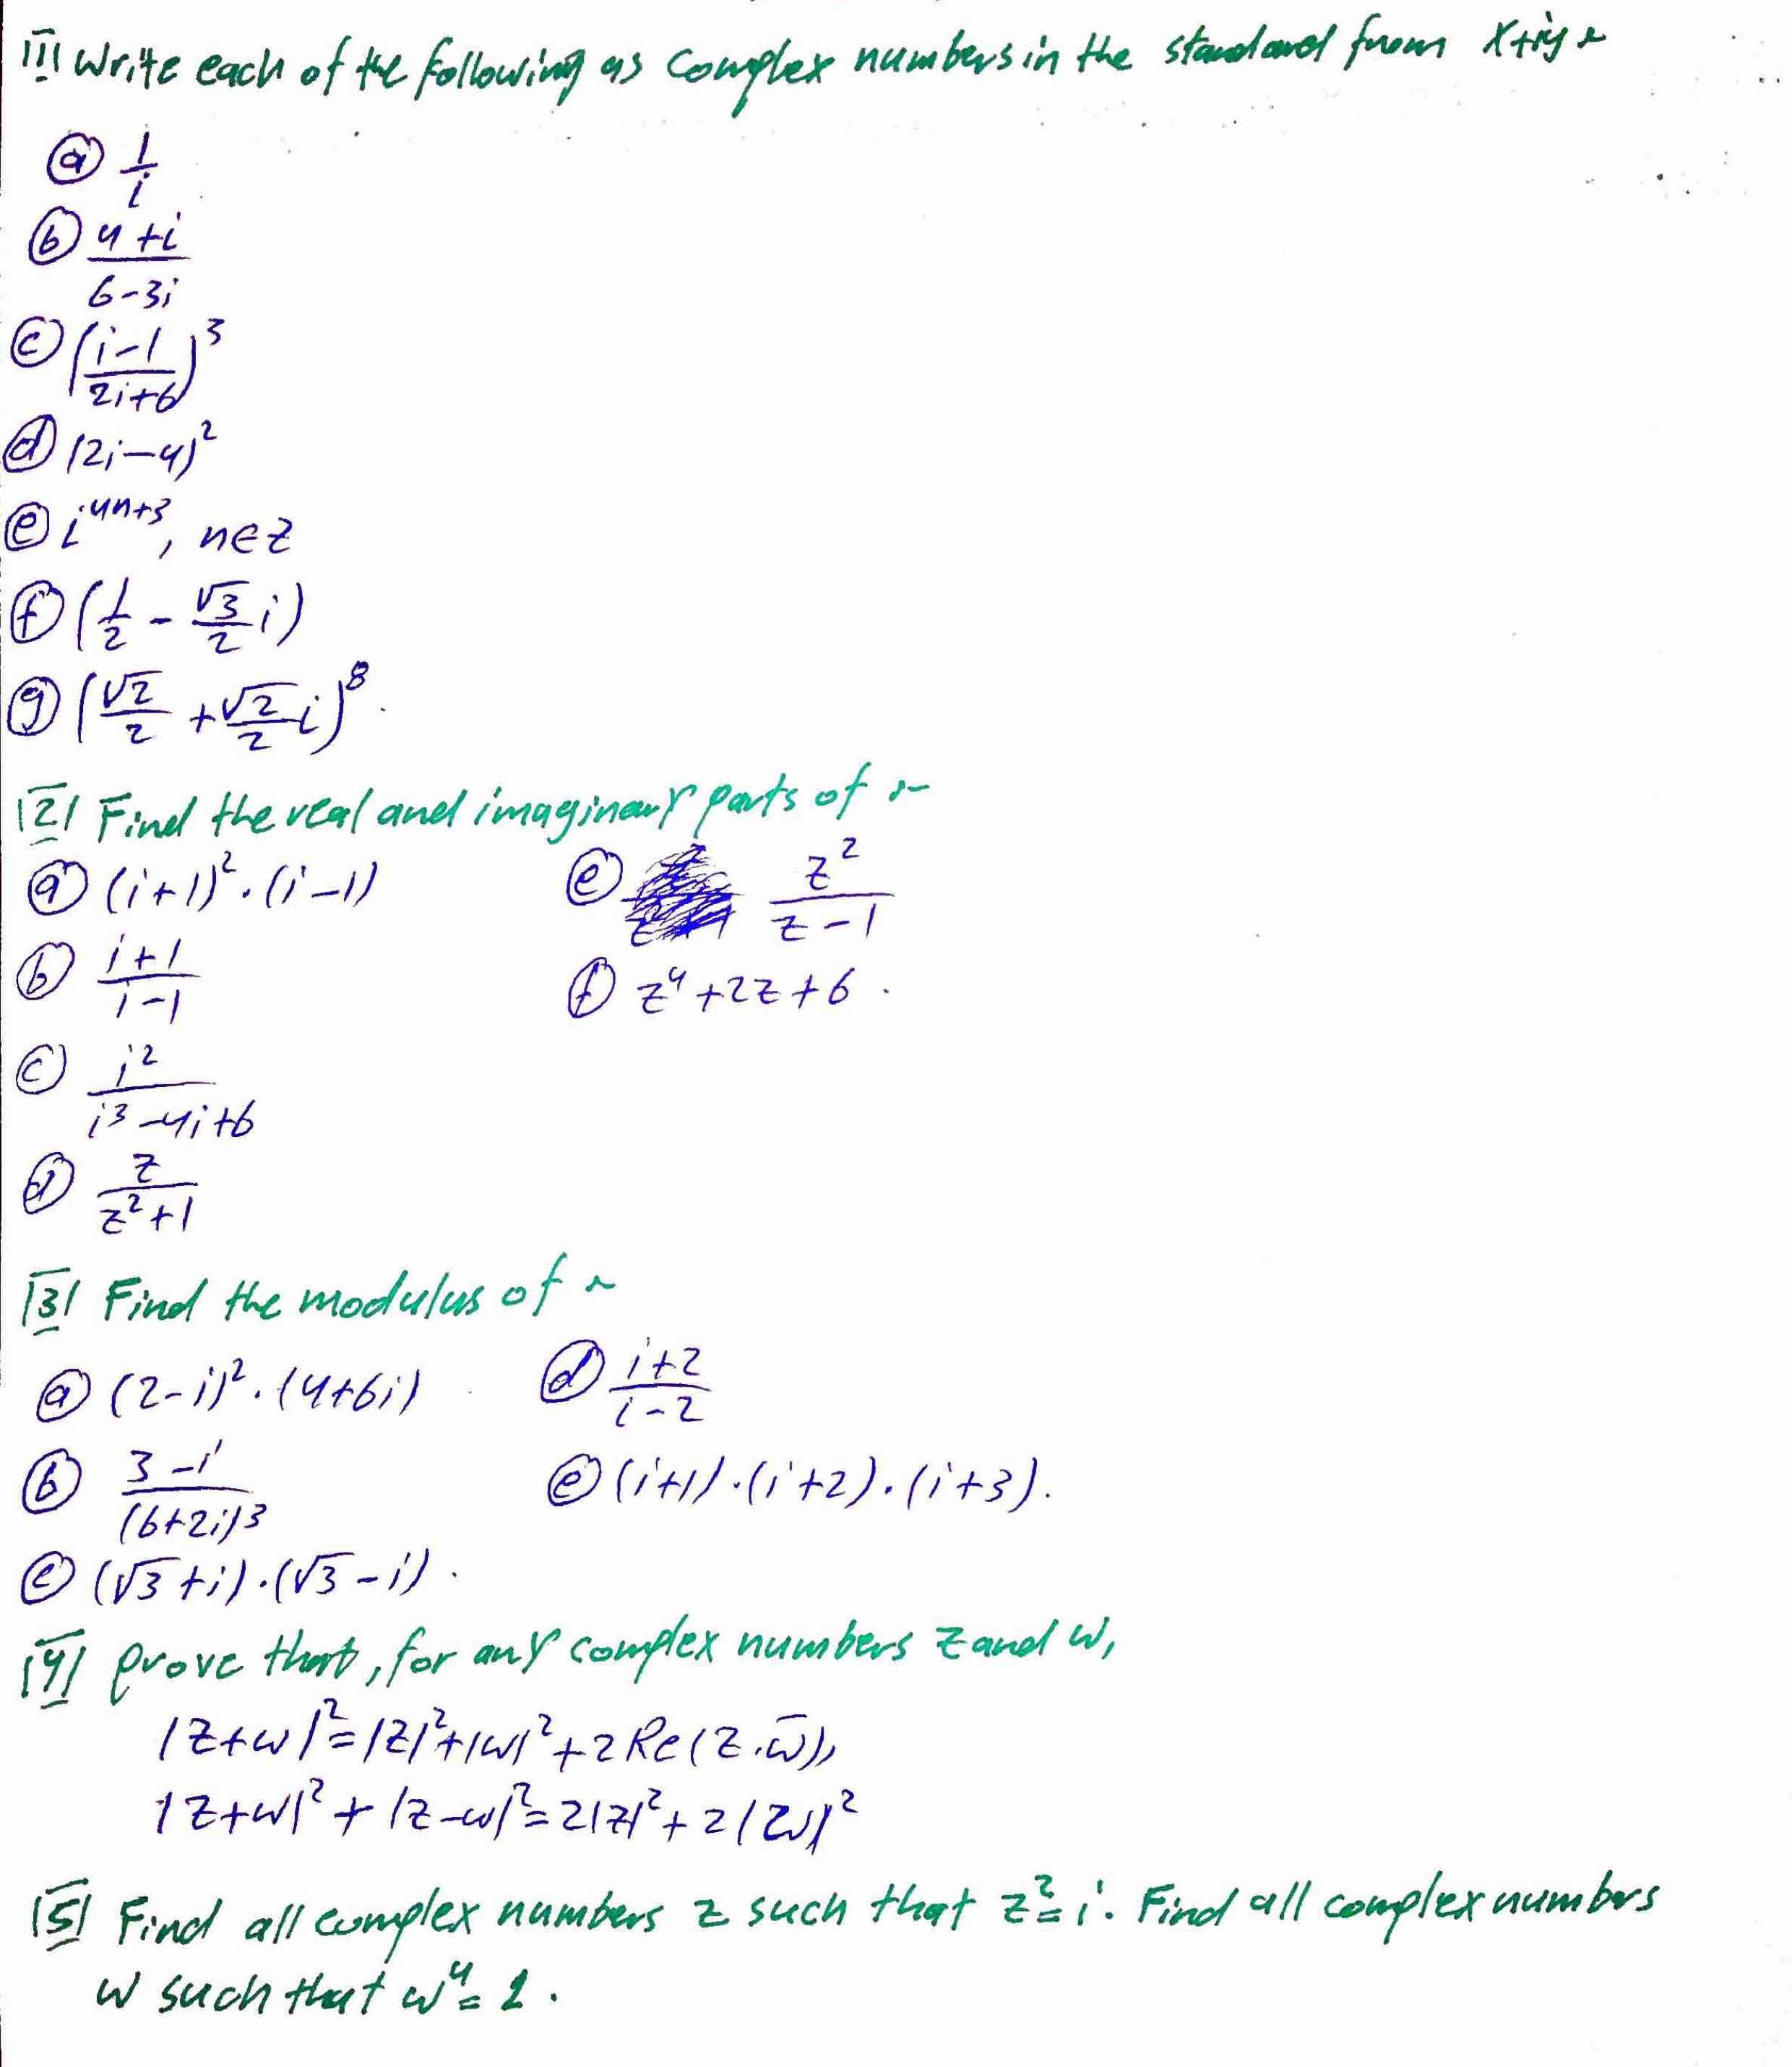 |1| Write each of the following as Complex numbers in the standard from x+iy ~
ⓐ 1/i
ⓑ (4+i)/(6-3i)
ⓒ ((i-1)/(2i+6))³
ⓓ (2i-4)²
ⓔ i^(4n+3), n∈Z
ⓕ (1/2 - √3/2 i)
ⓖ (√2/2 + √2/2 i)⁸.
|2| Find the real and imaginary parts of ~
ⓐ (i+1)².(i-1)
ⓑ (i+1)/(i-1)
ⓒ i²/(i³-4i+6)
ⓓ z/(z²+1)
ⓔ z²/(z-1)
ⓕ z⁴+2z+6.
|3| Find the modulus of ~
ⓐ (2-i)².(4+6i)
ⓑ (3-i)/(6+2i)³
ⓒ (√3+i).(√3-i).
ⓓ (i+2)/(i-2)
ⓔ (i+1).(i+2).(i+3).
|4| prove that, for any complex numbers z and w,
|z+w|²=|z|²+|w|²+2Re(z.w̄),
|z+w|²+|z-w|²=2|z|²+2|w|²
|5| Find all complex numbers z such that z²=i. Find all complex numbers
w such that w⁴=1.